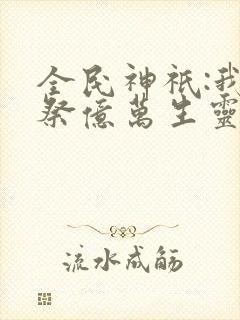 全民神祇:我
祭億萬生靈
流水成觞